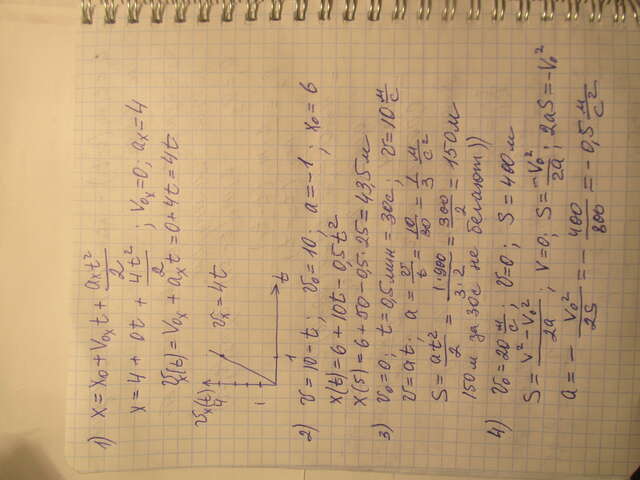 1) x = x₀ + v₀ₓt + aₓt²/2
x = 4 + 0t + 4t²/2 ; v₀ₓ=0; aₓ=4
vₓ(t) = v₀ₓ + aₓt = 0+4t = 4t
vₓ(t)
4
vₓ = 4t
1
1
t
2) v = 10 - t; v₀ = 10; a = -1; x₀ = 6
x(t) = 6 + 10t - 0,5t²
x(5) = 6 + 50 - 0,5·25 = 43,5 м
3) v₀ = 0; t = 0,5 мин = 30с; v = 10 м/с
v = at; a = v/t = 10/30 = 1/3 м/с²
S = at²/2 = 1·900/3·2 = 300/2 = 150 м
150 м за 30с не бегают))
4) v₀ = 20 м/с; v = 0; S = 400 м
S = v² - v₀²/2a; v = 0; S = -v₀²/2a; 2aS = -v₀²
a = - v₀²/2S = - 400/800 = - 0,5 м/с²